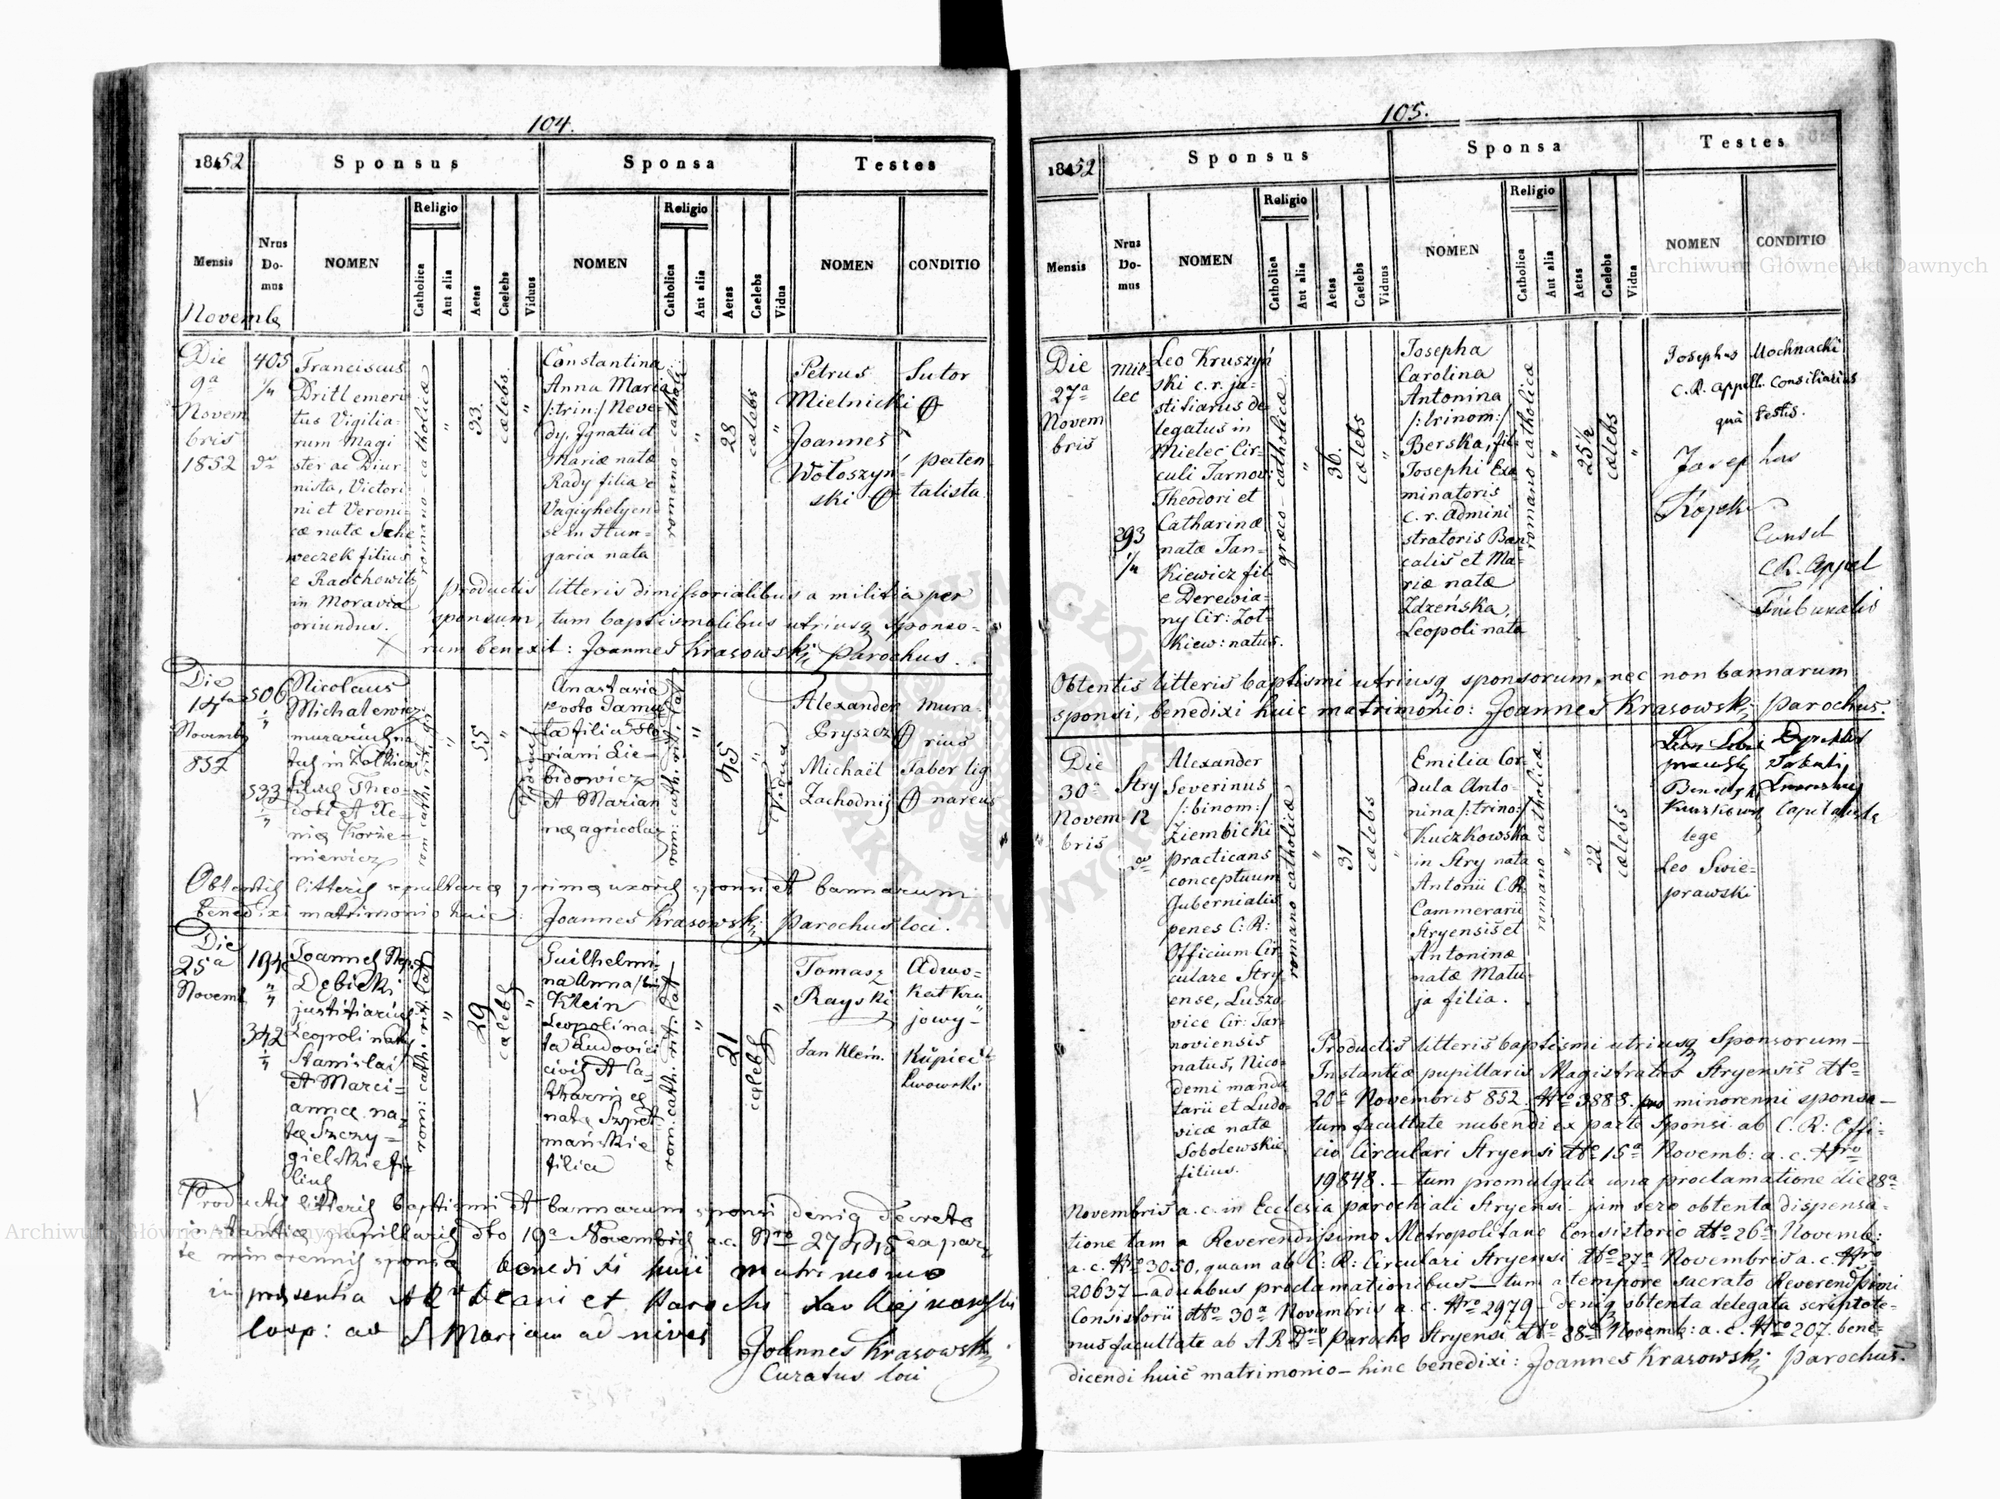 104.
1852
Sponsus
Sponsa
Testes
Mensis
Nrus Do- mus
NOMEN
Religio
Catholica
Aut alia
Aetas
Caelebs
Viduus
NOMEN
Religio
Catholica
Aut alia
Aetas
Caelebs
Vidua
NOMEN
CONDITIO
Novemb
Die
9a
Novem
bris
1852
405
1/4
Franciscus
Drittl emeri
tus Vigilia-
rum Magi
ster ac Diur-
nista, Victori
ni et Veroni-
cæ natæ Sche
weczek filius
e Radchowitz
in Moravia
oriundus.
romano-catholicæ
"
33.
cælebs.
"
Constantina
Anna Maria
/:trin:/ Neve-
dy, Ignatii et
Mariæ natæ
Rady filia e
Vagyhelyen
se in Hun-
garia nata
romano-catholi
"
28
cælebs
"
Petrus
Mielnicki
Joannes
Wołoszyń-
ski
Sutor
paten-
talista.
Productis litteris dimissorialibus a militia per
sponsum, tum baptismalibus utriusq sponso-
rum benexit: Joannes Krasowski, Parochus.
Die
14ta
Novemb
852
506
1/4
533
1/4
Nicolaus
Michalewicz
murarius na
tus in Żółkiew
filius Theo-
dori et Xe-
niæ Korze-
niewicz
rom: cath: rit: lat
"
55
"
Viduus
Anastasia
1o voto Samu
ta filia Flo
riani Lie-
bidowicz
et Marian
næ agricolar
rom: cath: rit: lat
"
45
"
Vidua
Alexander
Pryszcz
Michaël
Zachodnij
mura-
rius
Faber lig
narius
Obtentis litteris sepulturæ primæ uxoris sponsi et bannarum
benedixi matrimonio huic: Joannes Krasowski, Parochus loci.
Die
25a
Novemb
194
342
1/4
Joannes
Dębicki
justitiarius
Leopoli natus
Stanislai
et Marci-
annæ na-
tæ Szczy-
gielskie fi-
lius
rom: cath: rit: lat
"
29
cælebs
"
Guilhelmi-
na Anna /bin
Klein
Leopoli na-
ta Ludovici
civis et Ca-
tharinæ
natæ Szpet
mańskie
filia
rom: cath: rit: lat
"
21
cælebs
"
Tomasz
Rayski
Jan Klein.
Adwo-
kat kra
jowy-
Kupiec
Lwowski
Productis litteris baptismi et bannarum sponsi deniq decreto
instantiæ pupillaris dto 19a Novembris a.c. Nro 27445 ex par-
te minorennis sponsæ benedixi huic matrimonio
in præsentia A R Decani et Parochi
ad S Mariam ad nives
Joannes Krasowski,
Curatus loci
105.
1852
Sponsus
Sponsa
Testes
Mensis
Nrus Do- mus
NOMEN
Religio
Catholica
Aut alia
Aetas
Caelebs
Viduus
NOMEN
Religio
Catholica
Aut alia
Aetas
Caelebs
Vidua
NOMEN
CONDITIO
Die
27a
Novem
bris
Mie-
lec
293
1/4
Leo Kruszyń
ski c. r. ju-
stitiarius de-
legatus in
Mielec Cir-
culi Tarnov:
Theodori et
Catharinæ
natæ Jan-
kiewicz fil:
e Derewia-
ny Cir: Żół-
kiew: natus.
græco-catholicæ
"
36.
cælebs
"
Josepha
Carolina
Antonina
/:trinom:/
Berska, fil:
Josephi Exa
minatoris
c. r. Admini
stratoris Ban-
calis et Ma-
riæ natæ
Zdzeńska,
Leopoli nata
romano catholicæ
"
25½
cælebs
"
Josephus Mochnacki
C. R. Appell. Consiliarius
quà testis.
Josephus
Kozek
Consil
C.R. Appel
Tribunalis
Obtentis litteris baptismi utriusq sponsorum, nec non bannarum
sponsi, benedixi huic matrimonio: Joannes Krasowski, Parochus.
Die
30a
Novem
bris
Stry
12
Alexander
Severinus
/:binom:/
Ziembicki
practicans
conceptuum
Gubernialis
penes C: R:
Officium Cir-
culare Stry-
ense, Luszo-
vice Cir: Tar-
noviensis
natus, Nico-
demi manda
tarii et Ludo-
vicæ natæ
Sobolewskie
filius.
romano catholicæ
"
31
cælebs
"
Emilia Cor-
dula Anto-
nina /:trino:/
Kuczkowska
in Stry nata
Antonii C.R.
Cammerarii
Stryensis et
Antoninæ
natæ Matu-
ja filia.
romano catholicæ
"
22
cælebs
"
lege
Leo Swie-
prawski
Productis litteris baptismi utriusq Sponsorum-
Instantiæ pupillaris Magistratus Stryensis dto
20a Novembris 852. Nro 3888. pro minorenni sponsa-
tum facultate nubendi ex parte Sponsi ab C. R: Offi-
cio Circulari Stryensi dto 15a Novemb: a. c. Nro
19848. - tum promulgata una proclamatione die 28a
Novembris a. c. in Ecclesia parochiali Stryensi- jam vero obtenta dispensa-
tione tam a Reverendissimo Metropolitano Consistorio dto 26a Novemb:
a. c. Nro 3050, quam ab C: R: Circulari Stryensi dto 27a Novembris a. c. Nro
20637-a duabus proclamationibus-tum a tempore sacrato Reverendissimi
Consistorii dto 30a Novembris a. c. Nro 2979- deniq obtenta delegata scripto te-
nus facultate ab A.R.D. Parocho Stryensi dto 28a Novemb: a. c. Nro 207. bene-
dicendi huic matrimonio-hinc benedixi: Joannes Krasowski Parochus.
Archiwum Główne Akt Dawnych
Archiwum Główne Akt Dawnych
ARCHIWUM GŁÓWNE AKT DAWNYCH